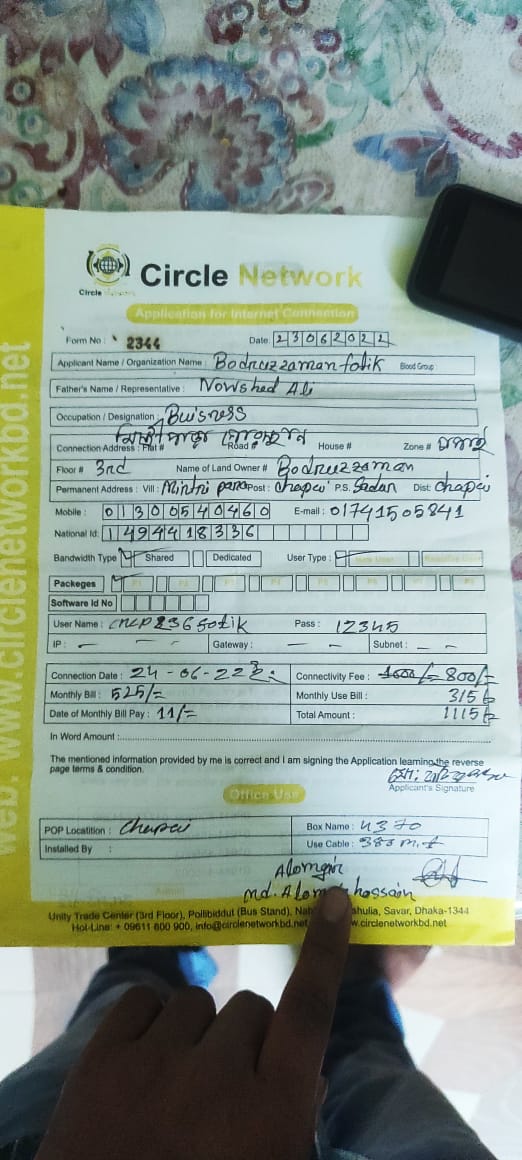 web: www.circlenetworkbd.net
Circle Network
Circle Network
Application for Internet Connection
Form No : 2344 Date: 23062022
Applicant Name / Organization Name : Bodruzzaman Blood Group
Father's Name / Representative : Nowshed Ali
Occupation / Designation : Buisness
Connection Address : Flat # Road # House # Zone #
Floor # 3rd Name of Land Owner # Bodruzzaman
Permanent Address : Vill : Mintri para Post : Chapai P.S. Sadar Dist: chapai
Mobile : 01300540460 E-mail : 01741505841
National Id: 1494418336
Bandwidth Type Shared Dedicated User Type : New User
Packeges P1 P2 P3 P4 P5 P6 P7 P8
Software Id No
User Name : Pass : 12345
IP : - - - Gateway : - - Subnet : - -
Connection Date : 24-06-22 Connectivity Fee : 1000/= 800/=
Monthly Bill : 525/= Monthly Use Bill : 315/=
Date of Monthly Bill Pay : 11/= Total Amount : 1115/=
In Word Amount:
The mentioned information provided by me is correct and I am signing the Application learning the reverse
page terms & condition.
Applicant's Signature
Office Use
POP Locatition : Chapai Box Name : 4370
Installed By : Use Cable : 385 mit
Alomgir
md. Alomgir hossain
Unity Trade Center (3rd Floor), Pollibiddut (Bus Stand), Savar, Dhaka-1344
Hot-Line: + 09611 800 900, info@circlenetworkbd.net www.circlenetworkbd.net